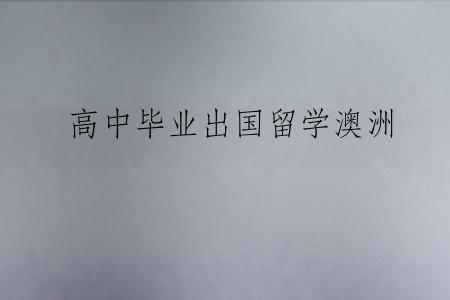 高中毕业出国留学澳洲